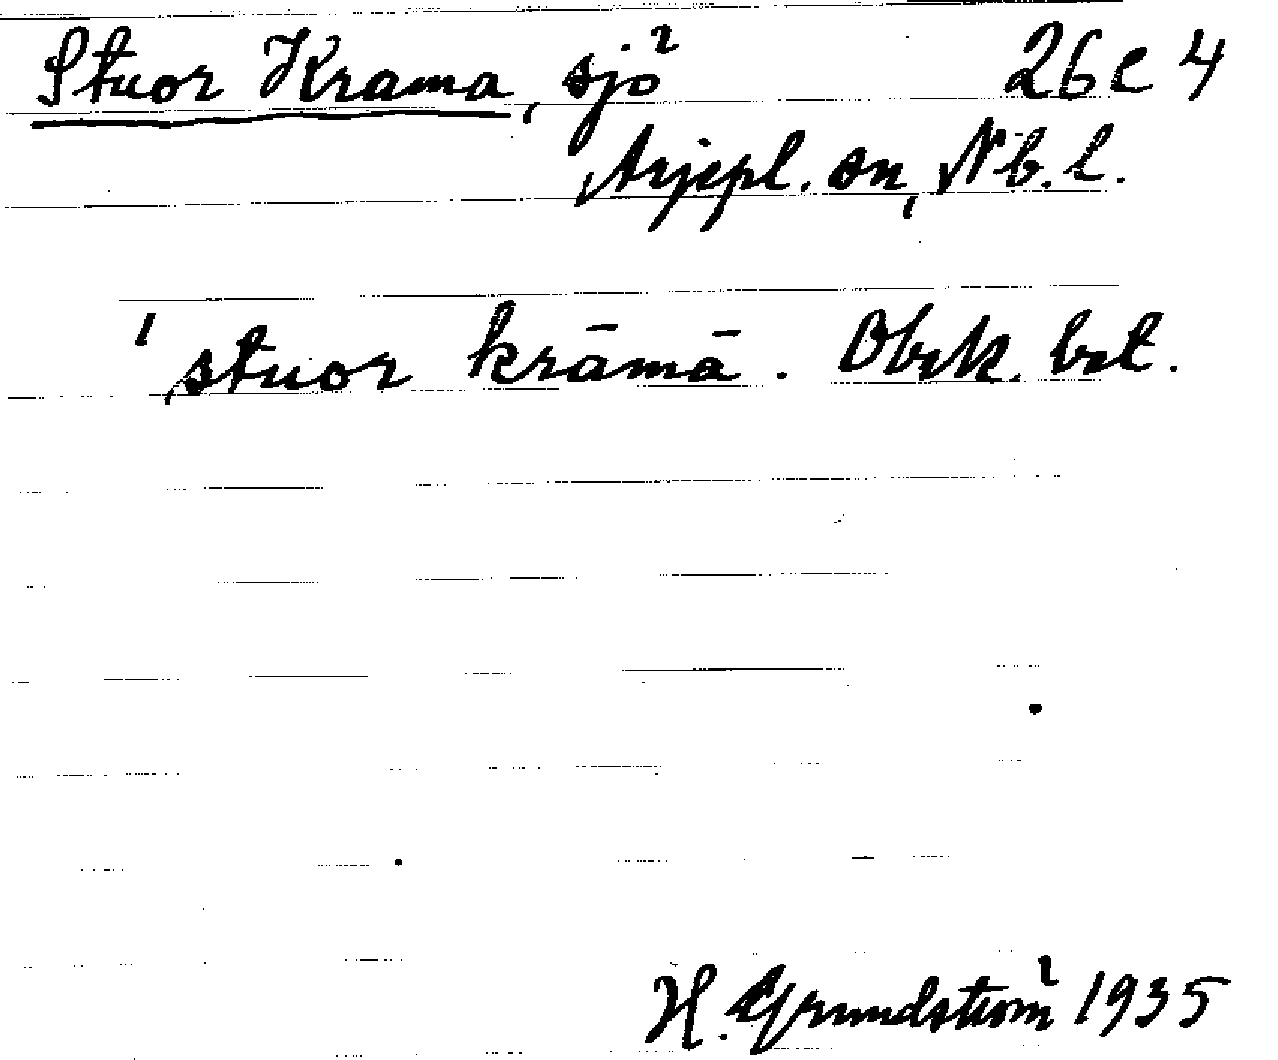 Stuor Krama, sjö 26 C 4
Arjepl. sn, Nb. l.
ˈstuor krāmā. Obek. bet.
H. Grundström 1935